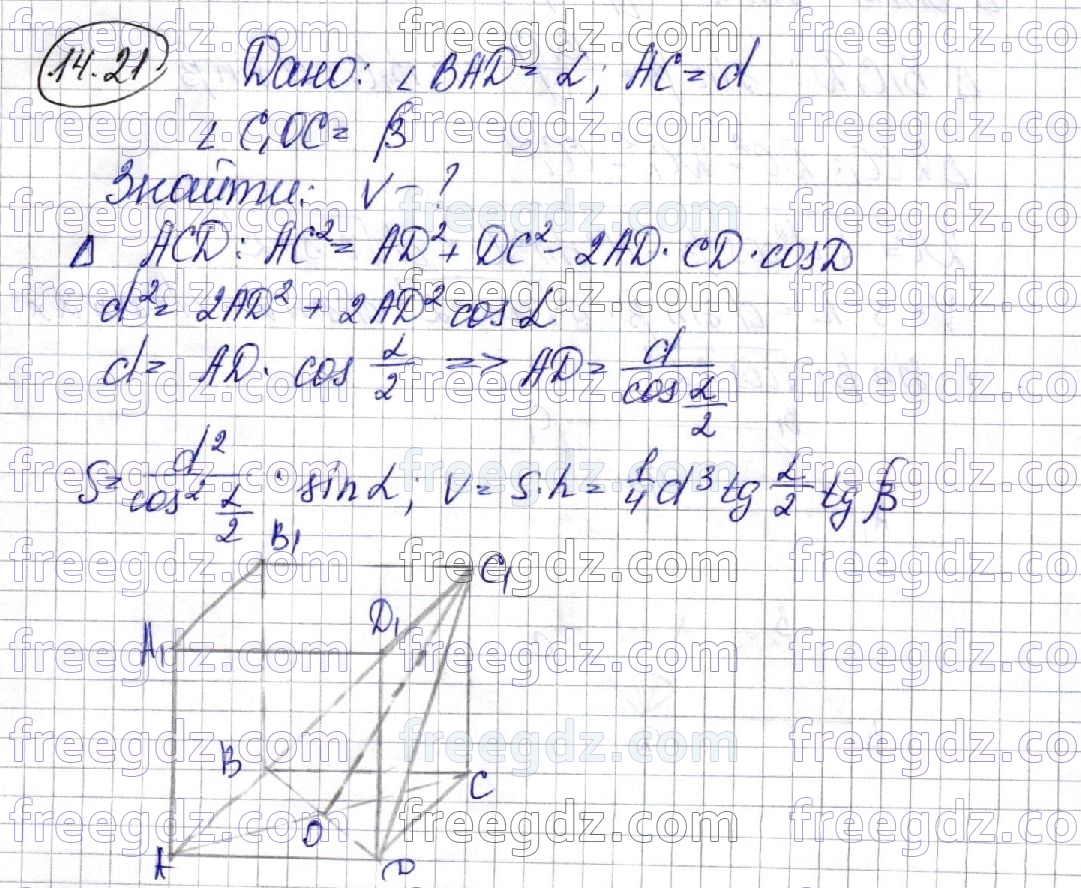 14.21
Дано: ∠ BAD = α; AC = d
∠ C₁OC = β
Знайти: V - ?
Δ ACD: AC² = AD² + DC² - 2AD · CD · cos D
d² = 2AD² + 2AD² cos α
d = AD · cos α/2 => AD = d / cos α/2
S = d² / cos² α/2 · sin α; V = S·h = 1/4 d³ tg α/2 tg β
B₁
C₁
D₁
A₁
B
C
O
A
D
freegdz.com